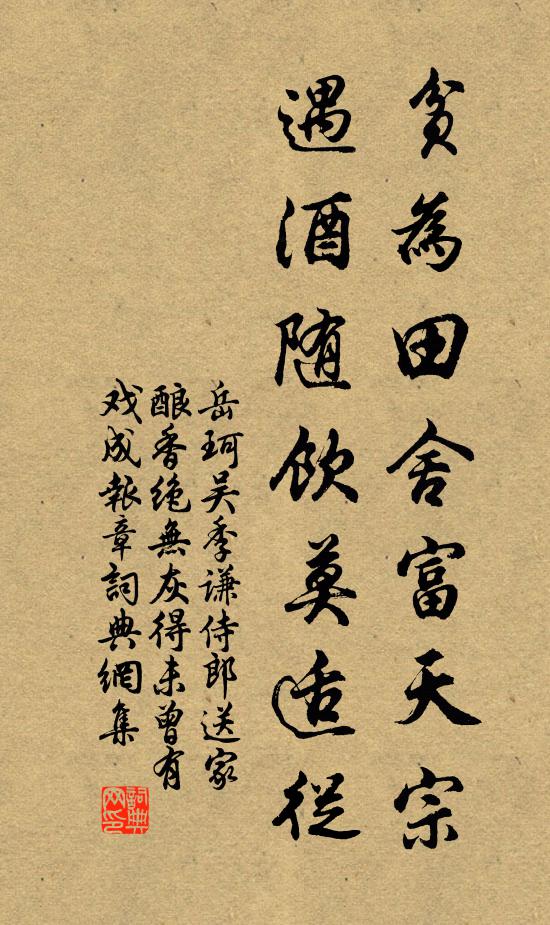 貧為田舍富天宗
遇酒随飲莫适從
岳珂吴季谦侍郎送家
酿香绝無灰得未曾有
戏成報章詞典網集
詞典网印